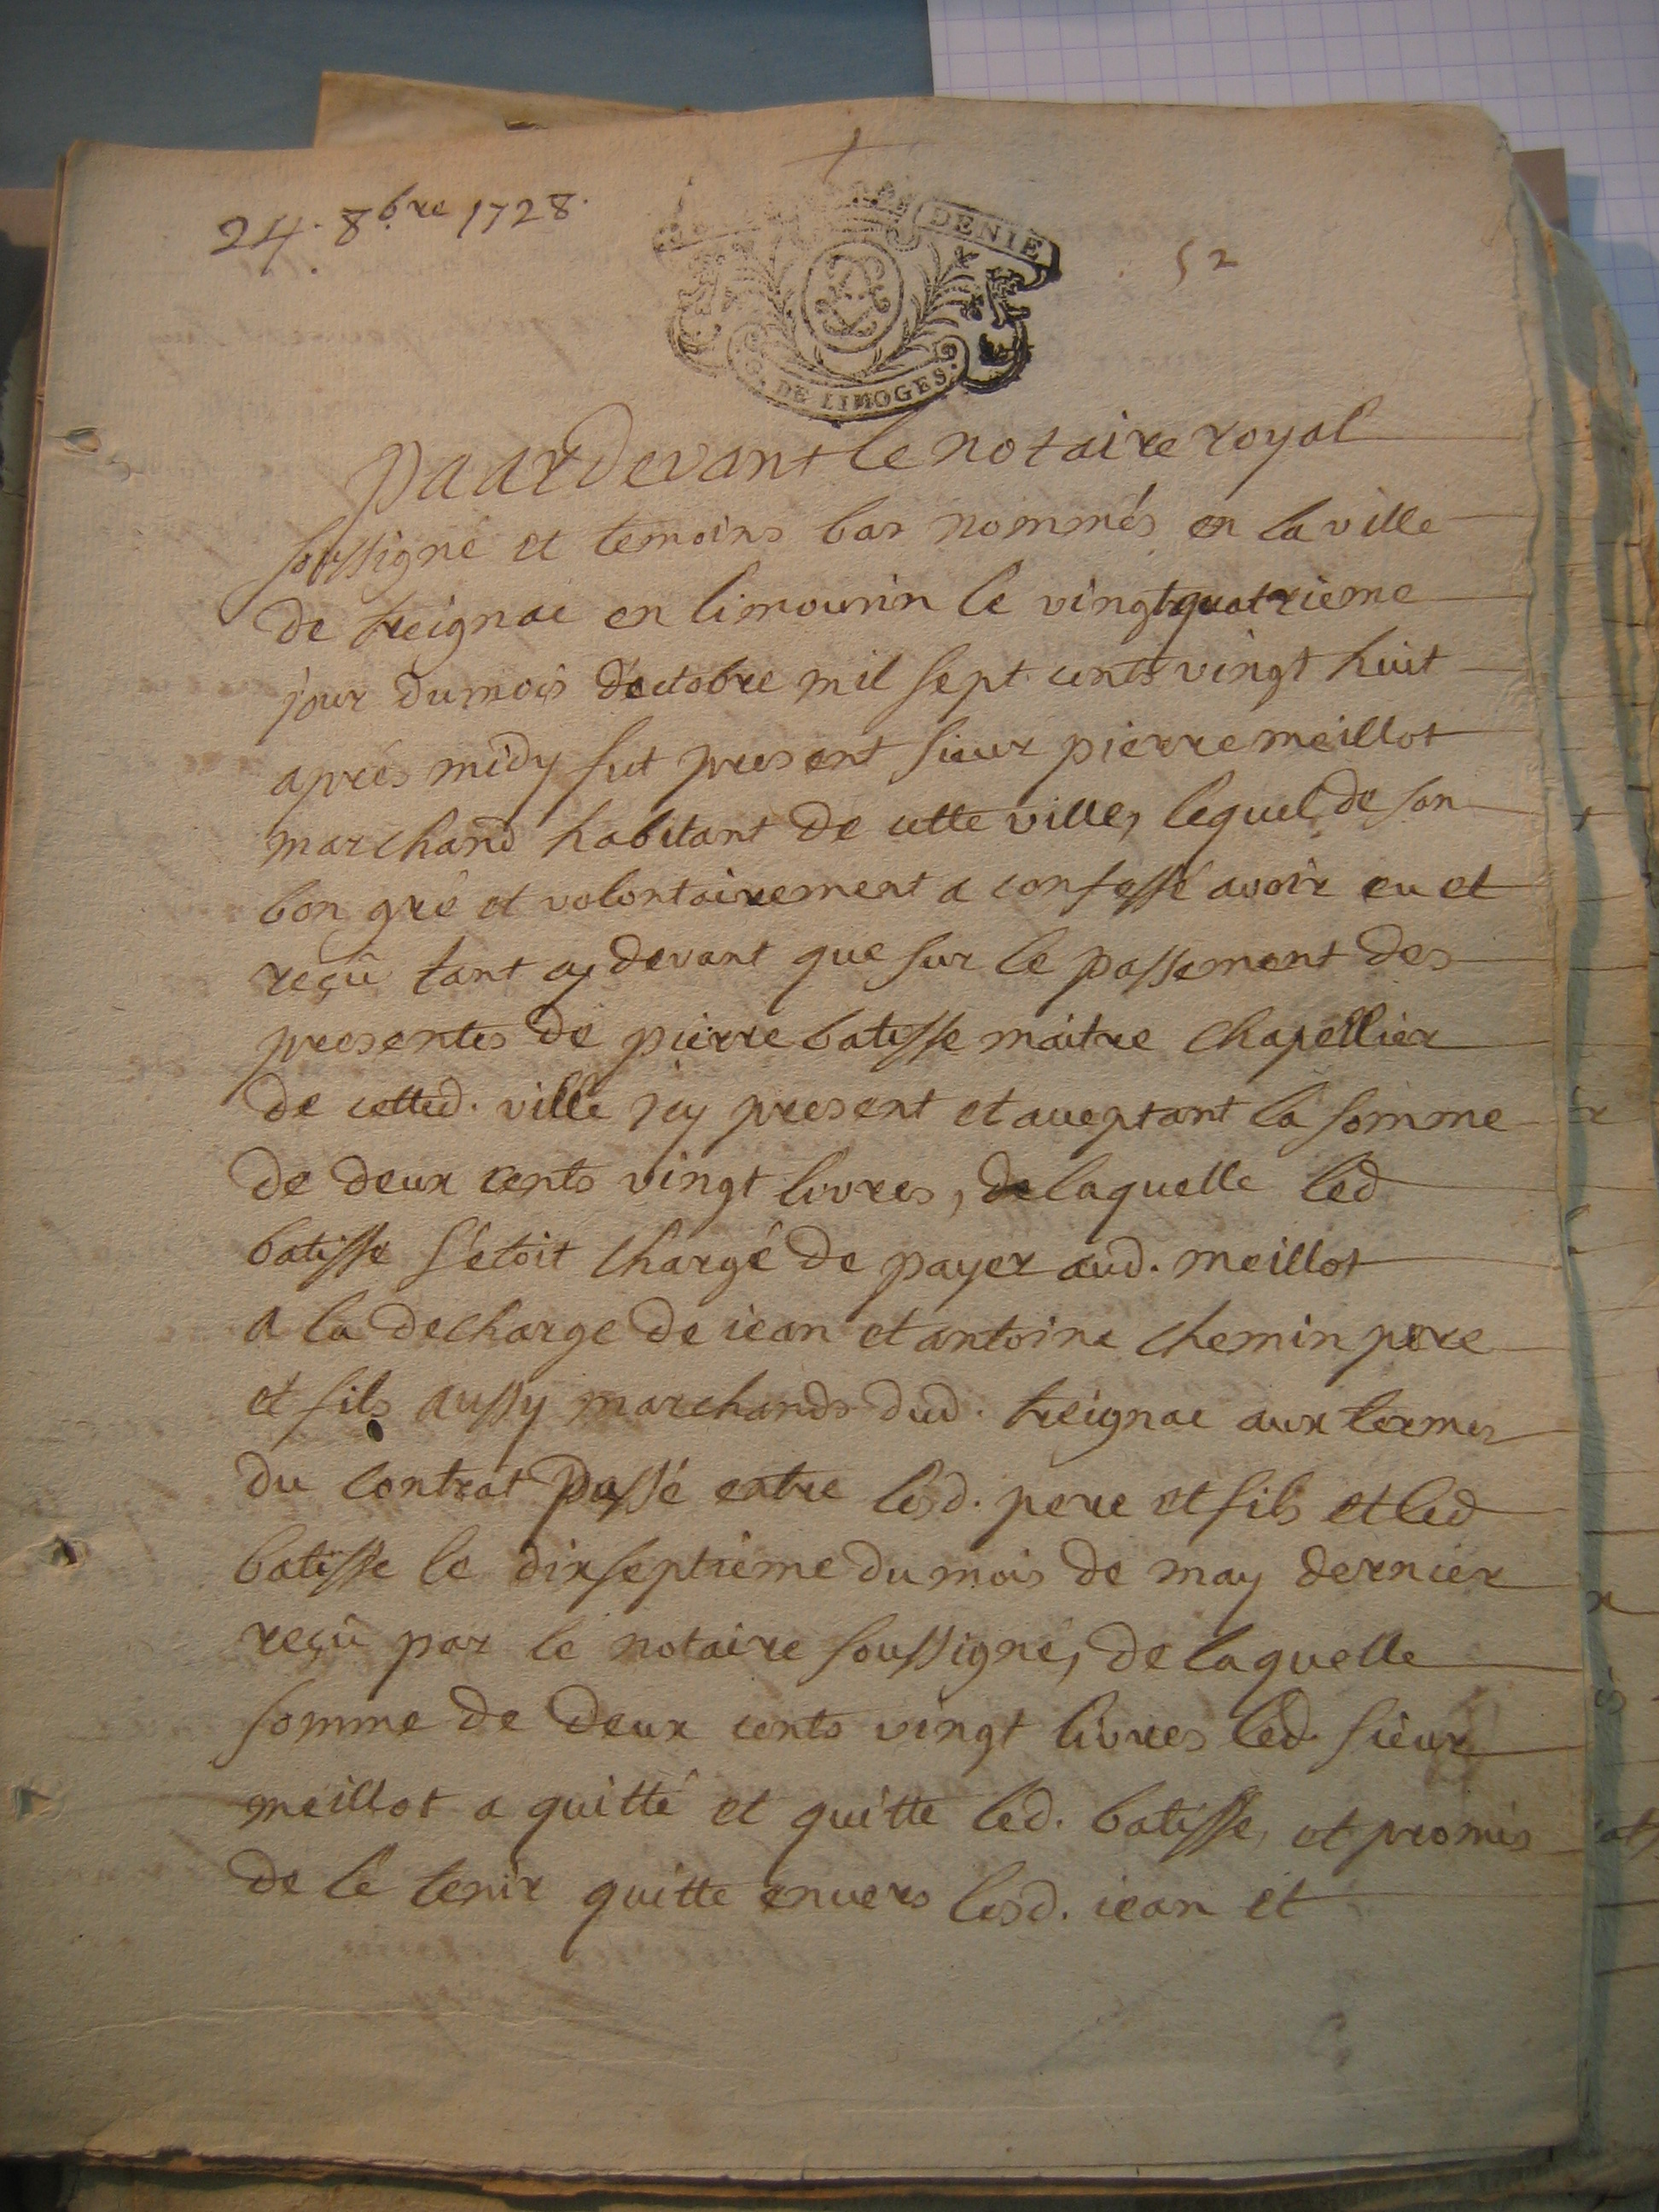 24. 8bre 1728.
DENIE
52
G. DE LIMOGES.
Paardevant le notaire royal
soussigné et temoins bas nommés en la ville
de treignac en limousin le vingtquatrieme
jour du mois d'octobre mil sept cents vingt huit
aprés midy fut present sieur pierre meillot
marchand habitant de cette ville, lequel de son
bon gré et volontairement a confessé avoir eu et
reçû tant cy devant que sur le passement des
presentes de pierre batisse maitre chapellier
de cetted. ville icy present et acceptant la somme
de deux cents vingt livres, de laquelle led
batisse s'étoit chargé de payer aud. meillot
a la decharge de iean et antoine chemin pere
et fils aussy marchands dud. treignac aux termes
du contrat passé entre lesd. pere et fils et led
batisse le dixseptieme du mois de may dernier
reçû par le notaire soussigné, de laquelle
somme de deux cents vingt livres led. sieur
meillot a quitté et quitte led. batisse, et promis
de le tenir quitte envers lesd. iean et